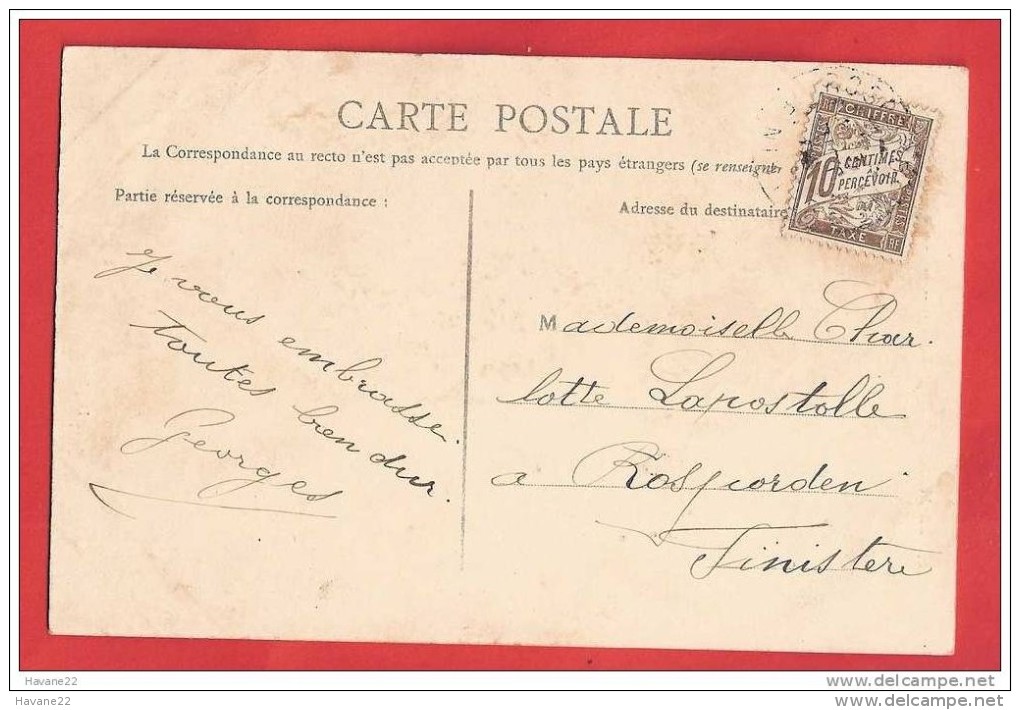 CARTE POSTALE
La Correspondance au recto n'est pas acceptée par tous les pays étrangers (se renseigner
Partie réservée à la correspondance :
Adresse du destinataire
CHIFFRE
10 CENTIMES
À
PERCEVOIR
TAXE
Je vous embrasse
toutes bien dur.
Georges
Mademoiselle Char
lotte Lapostolle
a Rosporden
Finistere
Havane22
www.delcampe.net
Havane22
www.delcampe.net